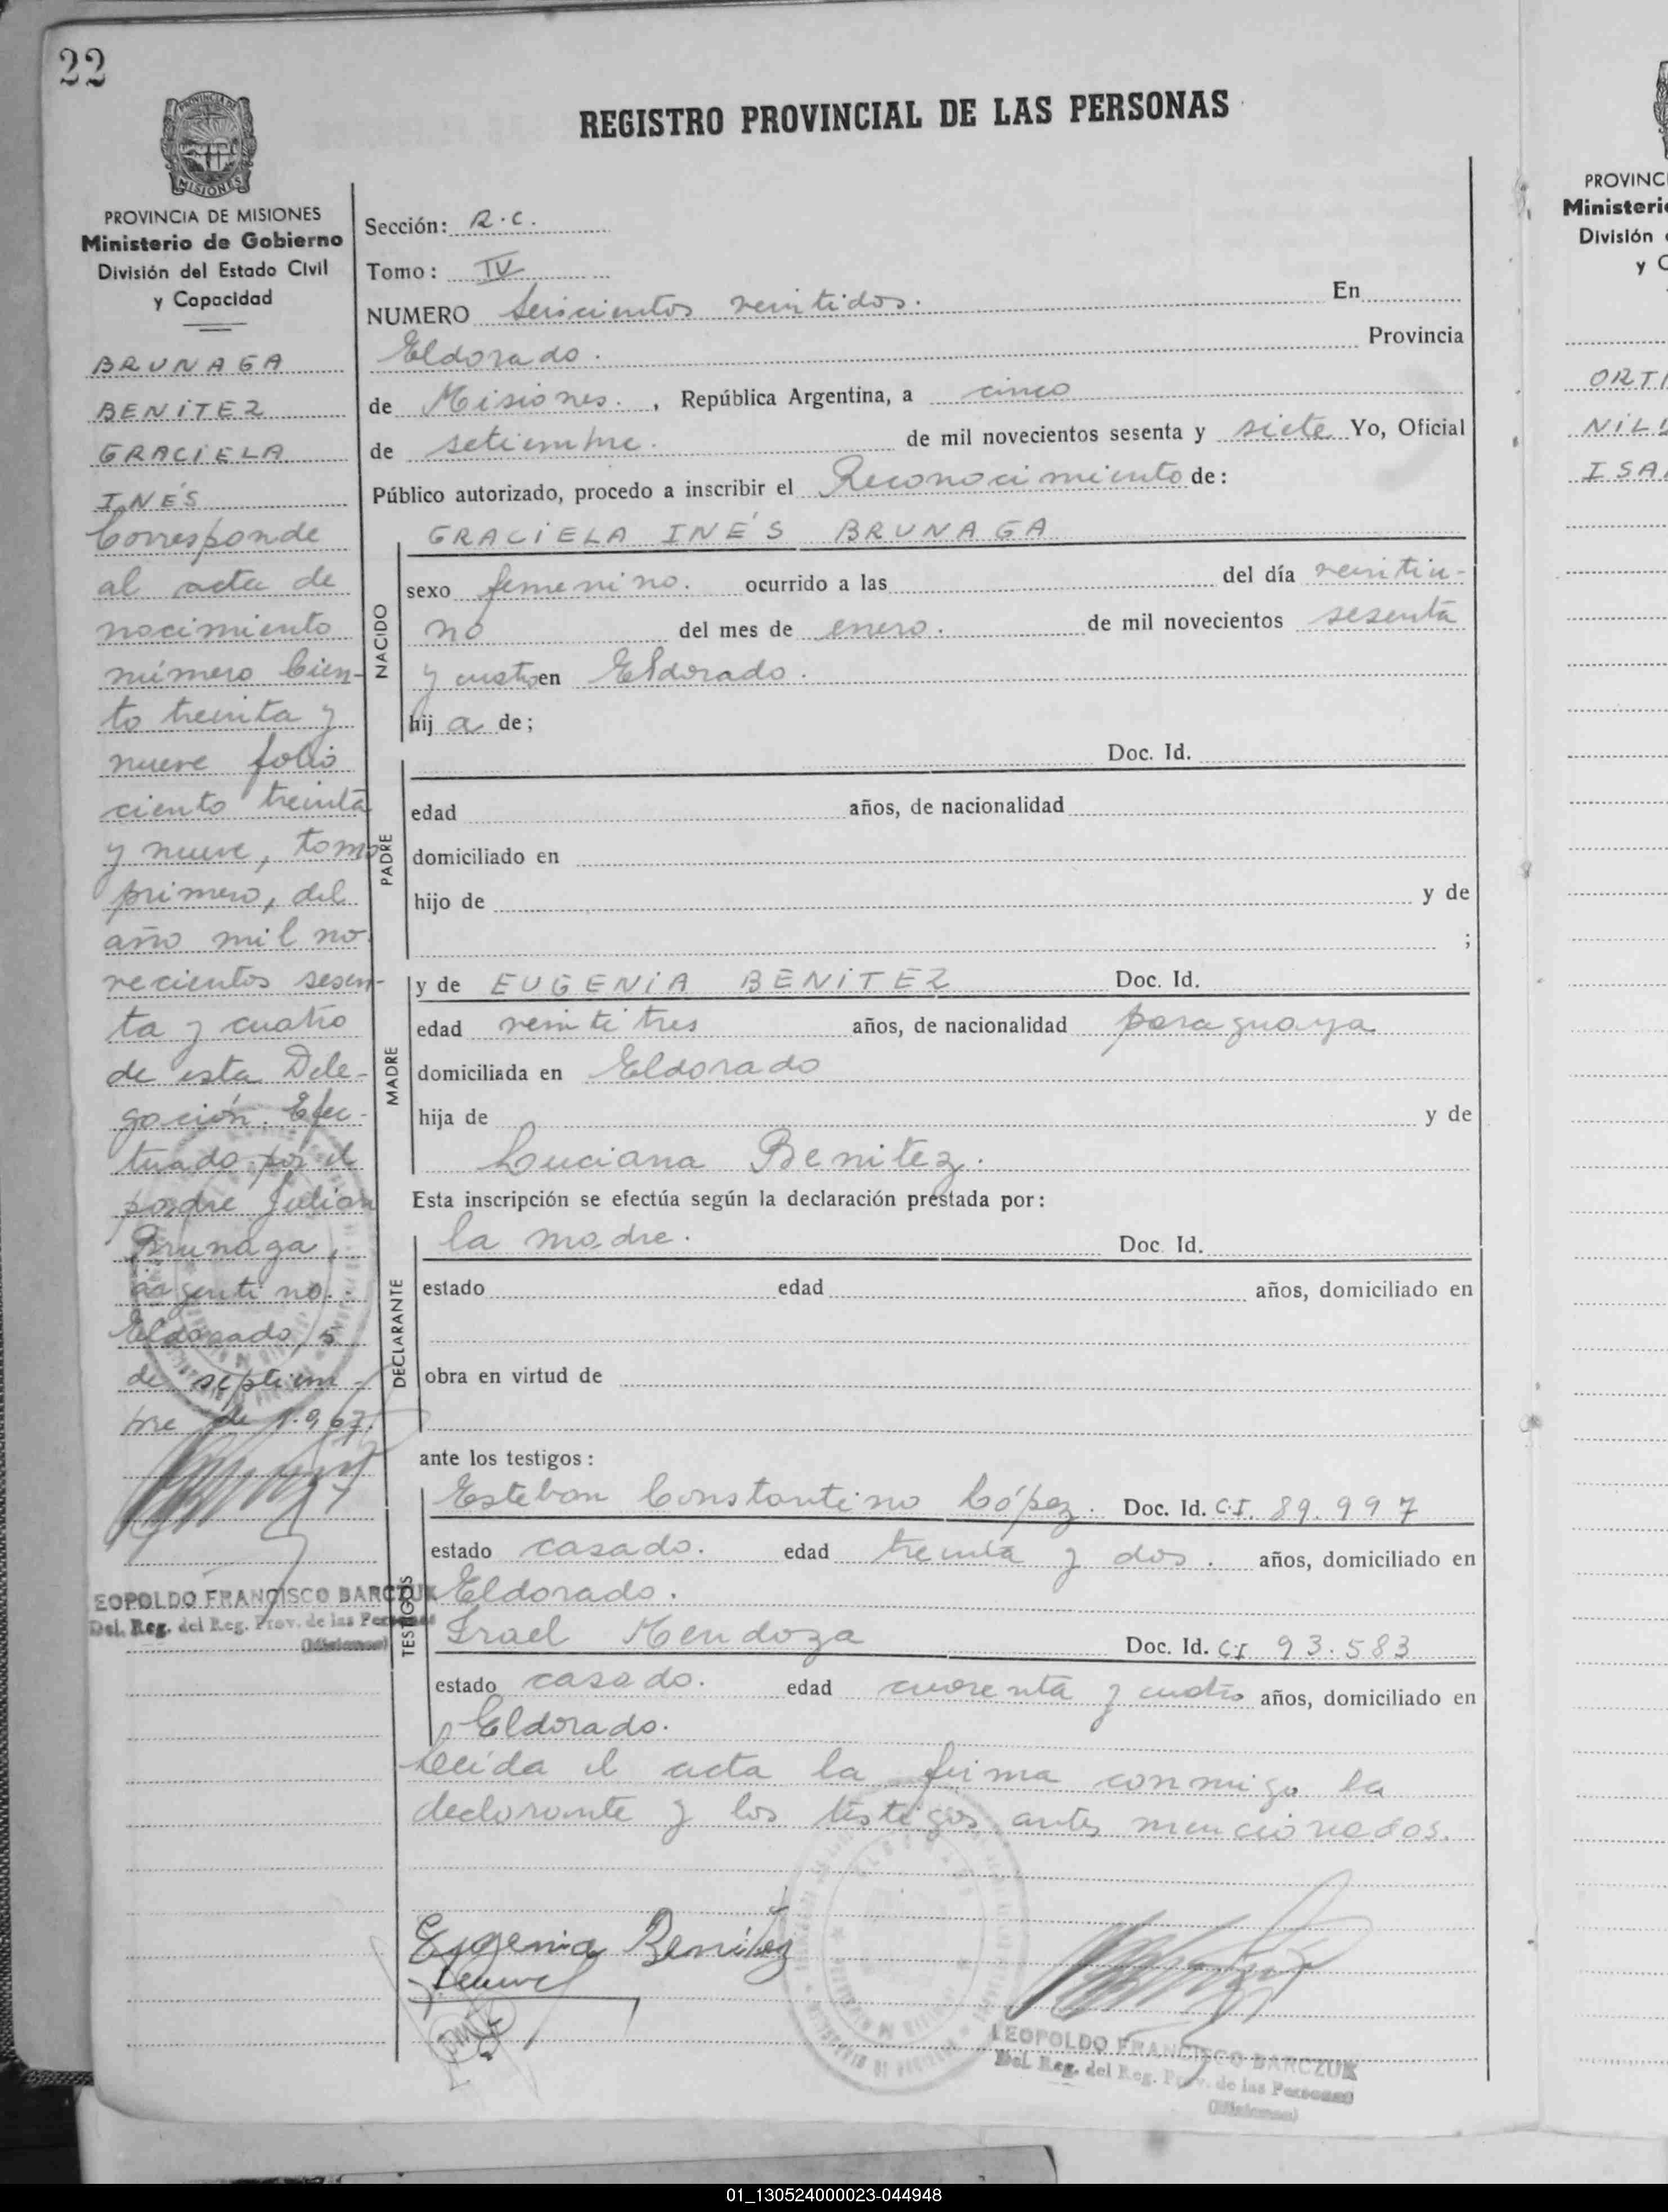 22
REGISTRO PROVINCIAL DE LAS PERSONAS
PROVINCIA DE MISIONES
Ministerio de Gobierno
División del Estado Civil
y Capacidad
BRUNAGA
BENITEZ
GRACIELA
INÉS
Corresponde
al acta de
nacimiento
número Cien-
to treinta y
nueve folio
ciento treinta
y nueve, tomo
primero, del
año mil no-
vecientos sesen-
ta y cuatro
de esta Dele-
gación. Efec-
tuado por el
padre Julian
Brunaga,
argentino.
Eldorado, 5
de septiem-
bre de 1.967.
LEOPOLDO FRANCISCO BARCZUK
Del. Reg. del Reg. Prov. de las Personas
(Misiones)
Sección: R.C.
Tomo: IV
NUMERO Seiscientos veintidos. En
Eldorado. Provincia
de Misiones. , República Argentina, a cinco
de setiembre. de mil novecientos sesenta y siete Yo, Oficial
Público autorizado, procedo a inscribir el Reconocimiento de:
NACIDO
GRACIELA INÉS BRUNAGA
sexo femenino. ocurrido a las del día veintiu-
no del mes de enero. de mil novecientos sesenta
y cuatro en Eldorado.
hij a de;
PADRE
Doc. Id.
edad años, de nacionalidad
domiciliado en
hijo de y de
;
MADRE
y de EUGENIA BENITEZ Doc. Id.
edad veintitres años, de nacionalidad paraguaya
domiciliada en Eldorado
hija de y de
Luciana Benitez.
Esta inscripción se efectúa según la declaración prestada por:
DECLARANTE
la madre. Doc. Id.
estado edad años, domiciliado en
obra en virtud de
ante los testigos:
TESTIGOS
Esteban Constantino López. Doc. Id. C.I. 89.997
estado casado. edad treinta y dos. años, domiciliado en
Eldorado.
Irael Mendoza Doc. Id. CI 93.583
estado casado. edad cuarenta y cuatro años, domiciliado en
Eldorado.
Leída el acta la firma conmigo la
declarante y los testigos antes mencionados.
Eugenia Benítez
LEOPOLDO FRANCISCO BARCZUK
Del. Reg. del Reg. Prov. de las Personas
(Misiones)
PROVINC
Ministerio
División
y C
ORTI
NIL
ISA
01_130524000023-044948